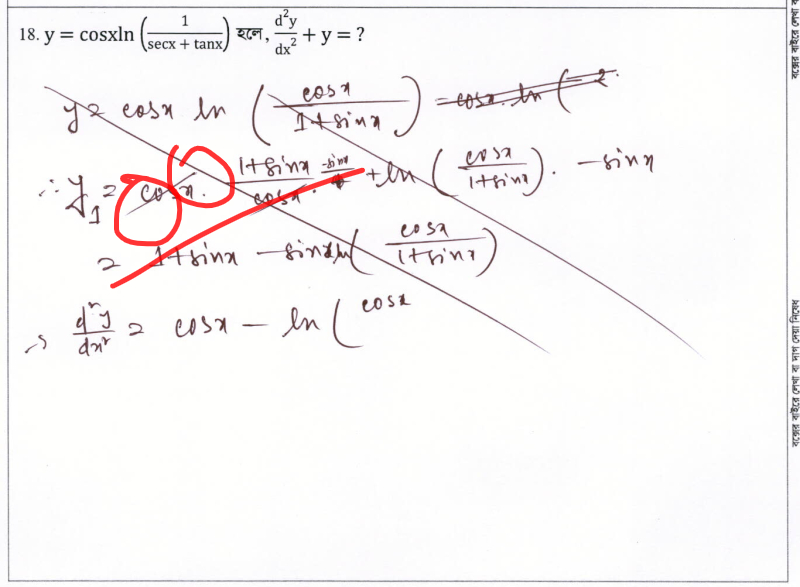 18. y = cosxln (1/(secx + tanx)) হলে, d²y/dx² + y = ?
y = cosx ln (cosx/(1+sinx)) = cosx. ln (
∴ y₁ = cosx. (1+sinx)/cosx . + ln (cosx/(1+sinx)). -sinx
= 1+sinx - sinx ln (cosx/(1+sinx))
⇒ d²y/dx² = cosx - ln (cosx
বক্সের বাইরে লেখা ব
বক্সের বাইরে লেখা বা দাগ দেয়া নিষেধ